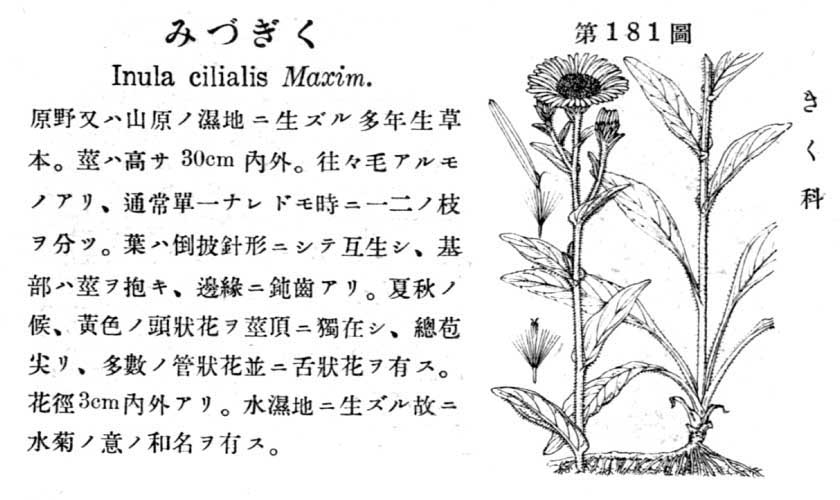 みづぎく
Inula cilialis Maxim.
原野又ハ山原ノ濕地ニ生ズル多年生草
本。莖ハ高サ 30cm 內外。往々毛アルモ
ノアリ、通常單一ナレドモ時ニ一二ノ枝
ヲ分ツ。葉ハ倒披針形ニシテ互生シ、基
部ハ莖ヲ抱キ、邊緣ニ鈍齒アリ。夏秋ノ
候、黃色ノ頭狀花ヲ莖頂ニ獨在シ、總苞
尖リ、多數ノ管狀花並ニ舌狀花ヲ有ス。
花徑3cm內外アリ。水濕地ニ生ズル故ニ
水菊ノ意ノ和名ヲ有ス。
第181圖
きく科